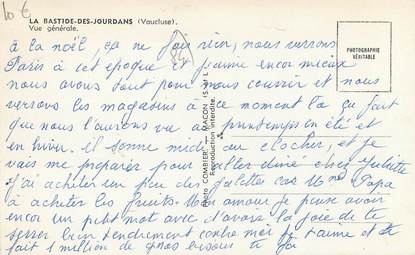 10 €
LA BASTIDE-DES-JOURDANS (Vaucluse).
Vue générale.
84
PHOTOGRAPHIE
VÉRITABLE
à la noël, ça ne fais rien, nous verrons
Paris à cet époque et j'aimie encor mieux
nous avons tout pour nous couvrir et nous
verrons les magasins à ce moment la ça fait
que nous l'aurons vu au printemps en été et
en hiver. il sonne midi au clocher, et je
vais me préparer pour aller diné chez
j'ai acheter un peu des galettes car Papa
à acheter les fruits. Mon amour je pense avoir
encor un petit mot avec d'avoir la joie de te
serrer bien tendrement contre moi je t'aime et te
fait 1 million de gros bisous
Photo COMBIER MACON (S.-et-L.)
Reproduction interdite.